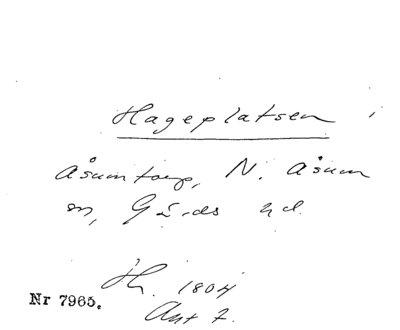 Hageplatsen i
Åsumtorp, N. Åsum
sn, Gärds hd.
Jh. 1804
Akt 7.
Nr 7965.